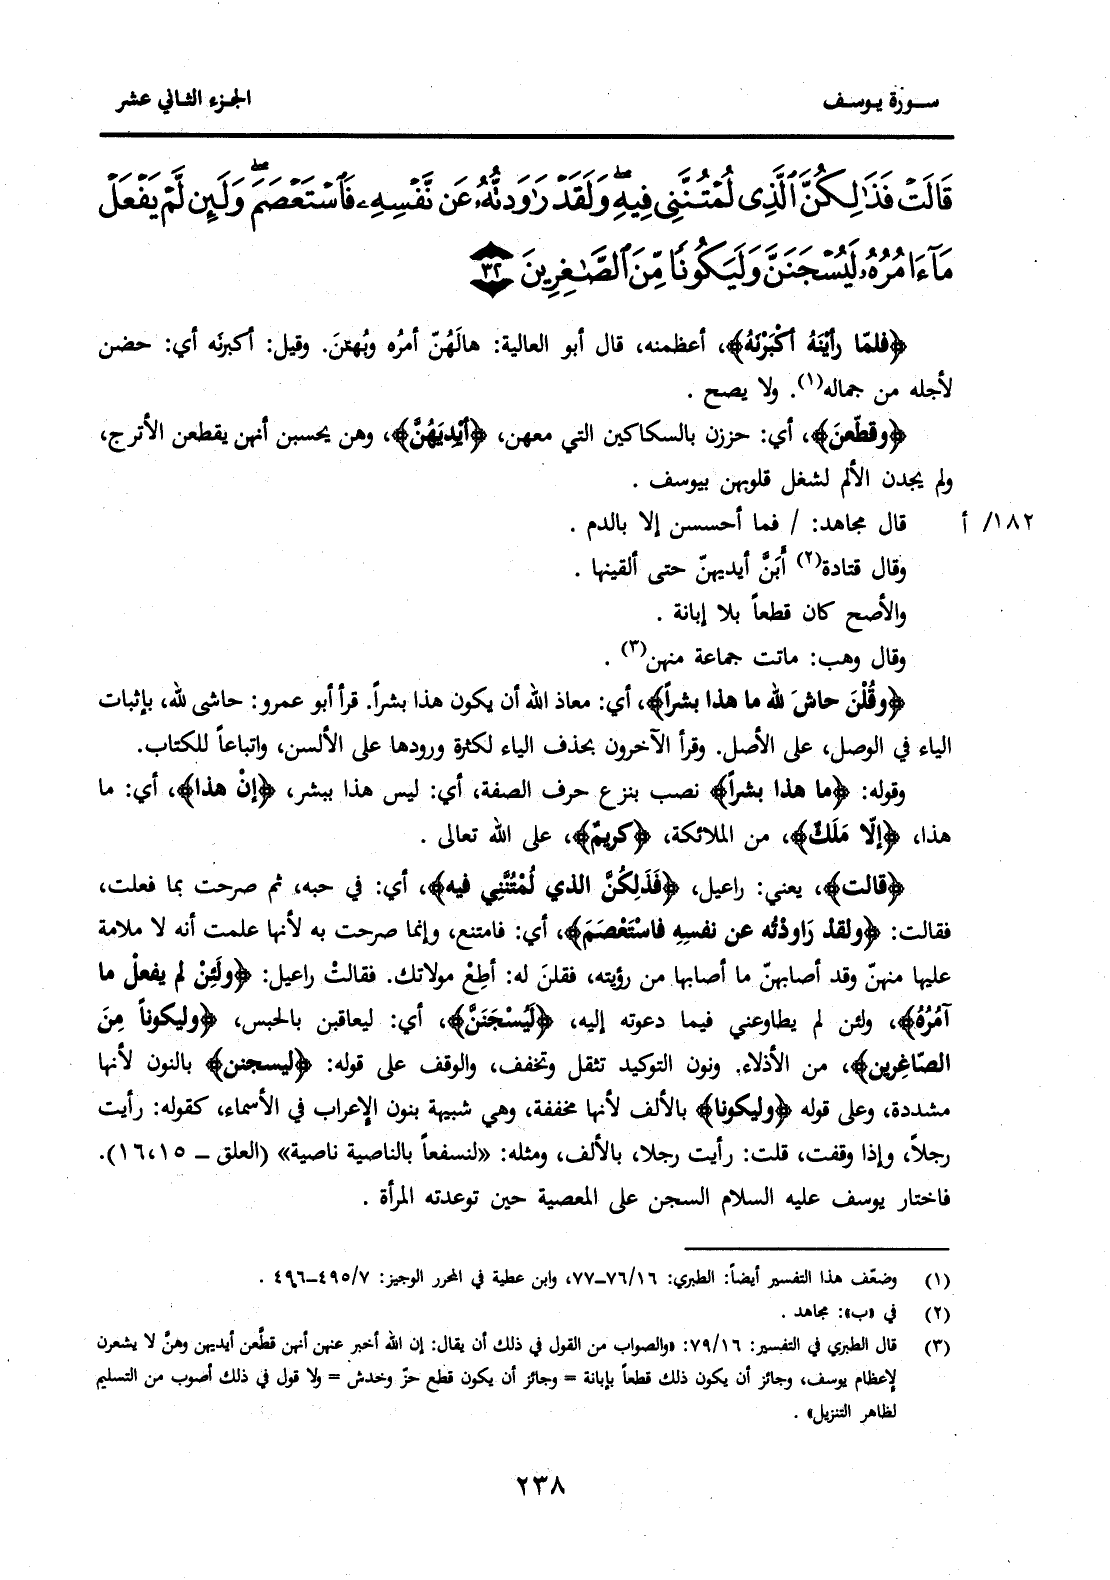 سورة يوسف
الجزء الثاني عشر
قَالَتْ فَذَٰلِكُنَّ ٱلَّذِى لُمْتُنَّنِى فِيهِ ۖ وَلَقَدْ رَٰوَدتُّهُۥ عَن نَّفْسِهِۦ فَٱسْتَعْصَمَ ۖ وَلَئِن لَّمْ يَفْعَلْ
مَآ ءَامُرُهُۥ لَيُسْجَنَنَّ وَلَيَكُونًا مِّنَ ٱلصَّٰغِرِينَ ٣٢
﴿فلمّا رأيْنَهُ أكْبَرْنَهُ﴾، أعظمنه، قال أبو العالية: هالَهُنّ أمرُه وبُهتنَ. وقيل: أكبرنَه أي: حضن
لأجله من جماله(١). ولا يصح .
﴿وقطّعنَ﴾، أي: حززن بالسكاكين التي معهن، ﴿أيْدِيَهُنَّ﴾، وهن يحسبن أنهن يقطعن الأترج،
ولم يجدن الألم لشغل قلوبهن بيوسف .
قال مجاهد: / فما أحسسن إلا بالدم . ١٨٢/ أ
وقال قتادة(٢) أَبَنَّ أيديهنّ حتى ألقينها .
والأصح كان قطعاً بلا إبانة .
وقال وهب: ماتت جماعة منهن(٣) .
﴿وقُلْنَ حاشَ لله ما هذا بشراً﴾، أي: معاذ الله أن يكون هذا بشراً. قرأ أبو عمرو: حاشى لله، بإثبات
الياء في الوصل، على الأصل. وقرأ الآخرون بحذف الياء لكثرة ورودها على الألسن، واتباعاً للكتاب.
وقوله: ﴿ما هذا بشراً﴾ نصب بنزع حرف الصفة، أي: ليس هذا ببشر، ﴿إنْ هذا﴾، أي: ما
هذا، ﴿إلّا مَلَكٌ﴾، من الملائكة، ﴿كريمٌ﴾، على الله تعالى .
﴿قالت﴾، يعني: راعيل، ﴿فَذَلِكُنَّ الذي لُمْتُنَّنِي فيه﴾، أي: في حبه، ثم صرحت بما فعلت،
فقالت: ﴿ولقدْ رَاودْتُه عن نفسِهِ فاسْتَعْصَمَ﴾، أي: فامتنع، وإنما صرحت به لأنها علمت أنه لا ملامة
عليها منهنّ وقد أصابهنّ ما أصابها من رؤيته، فقلنَ له: أطِعْ مولاتك. فقالتْ راعيل: ﴿ولَئِنْ لم يفعلْ ما
آمُرُهُ﴾، ولئن لم يطاوعني فيما دعوته إليه، ﴿لَيُسْجَنَنَّ﴾، أي: ليعاقبن بالحبس، ﴿وليكوناً مِنَ
الصّاغِرين﴾، من الأذلاء. ونون التوكيد تثقل وتخفف، والوقف على قوله: ﴿ليسجنن﴾ بالنون لأنها
مشددة، وعلى قوله ﴿وليكونا﴾ بالألف لأنها مخففة، وهي شبيهة بنون الإعراب في الأسماء، كقوله: رأيت
رجلاً، وإذا وقفت، قلت: رأيت رجلا، بالألف، ومثله: «لنسفعاً بالناصية ناصية» (العلق ــ ١٦،١٥).
فاختار يوسف عليه السلام السجن على المعصية حين توعدته المرأة .
(١) وضعّف هذا التفسير أيضاً: الطبري: ٧٦/١٦ــ٧٧، وابن عطية في المحرر الوجيز: ٤٩٥/٧ــ٤٩٦ .
(٢) في «ب»: مجاهد .
(٣) قال الطبري في التفسير: ٧٩/١٦: «والصواب من القول في ذلك أن يقال: إن الله أخبر عنهن أنهن قطَّعن أيديهن وهنَّ لا يشعرن
لإعظام يوسف، وجائز أن يكون ذلك قطعاً بإبانة = وجائز أن يكون قطع حزّ وخدش = ولا قول في ذلك أصوب من التسليم
لظاهر التنزيل» .
٢٣٨